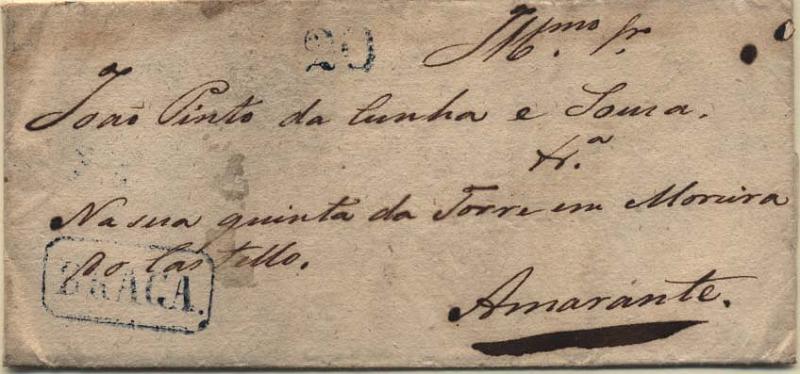 20
Illmo Sr.
João Pinto da Cunha e Souza.
Na sua quinta da Torre em Moreira
do Castello.
BRAGA.
Amarante.